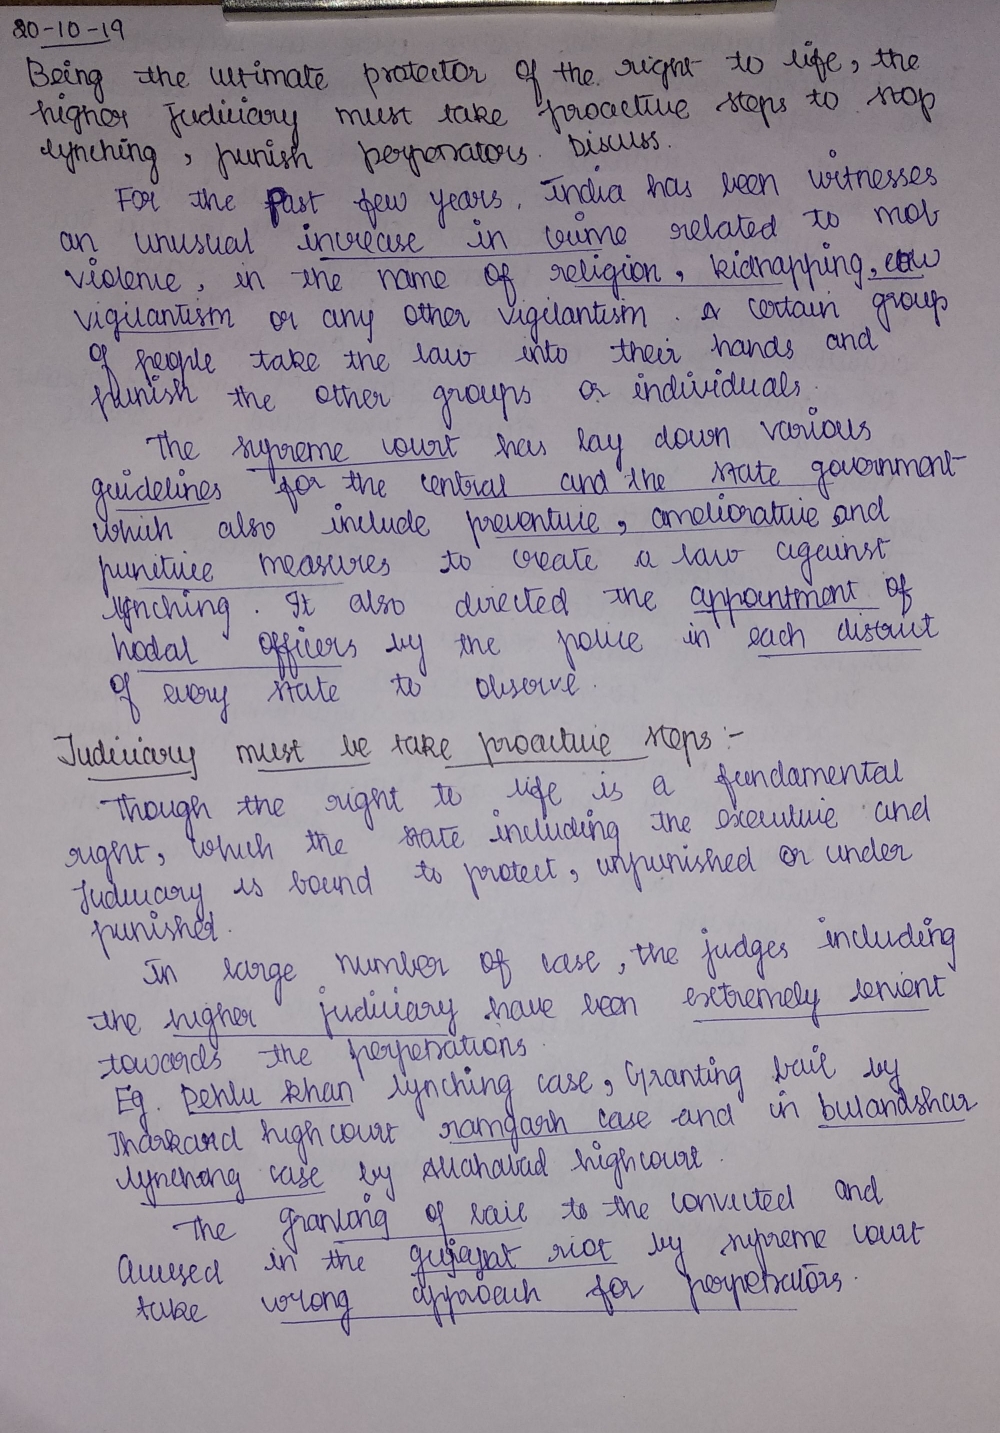 20-10-19
Being the ultimate protector of the right to life, the
higher judiciary must take proactive steps to stop
lynching, punish perpenators. Discuss.
For the Past few years, India has been witnesses
an unusual increase in crime related to mob
violence, in the name of religion, kidnapping, cow
vigilantism or any other vigilantism. A certain group
of people take the law into their hands and
punish the other groups or individuals.
The supreme court has lay down various
guidelines for the central and the state government
which also include preventive, ameliorative and
punitive measures to create a law against
lynching. It also directed the appointment of
nodal officers by the police in each district
of every state to observe.
Judiciary must be take proactive steps:-
Though the right to life is a fundamental
right, which the state including the executive and
Judiciary is bound to protect, unpunished or under
punished.
In large number of case, the judges including
the higher judiciary have been extremely lenient
towards the perpenations.
Eg. Pehlu khan lynching case, Granting bail by
Jharkand high court ramgarh case and in bulandshar
lynchong case by Allahabad highcourt.
The granting of bail to the convicted and
Accused in the gujarat riot by supreme court
take wrong approach for perpetrators.